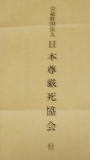 公益財団法人
日本尊厳死協会 行